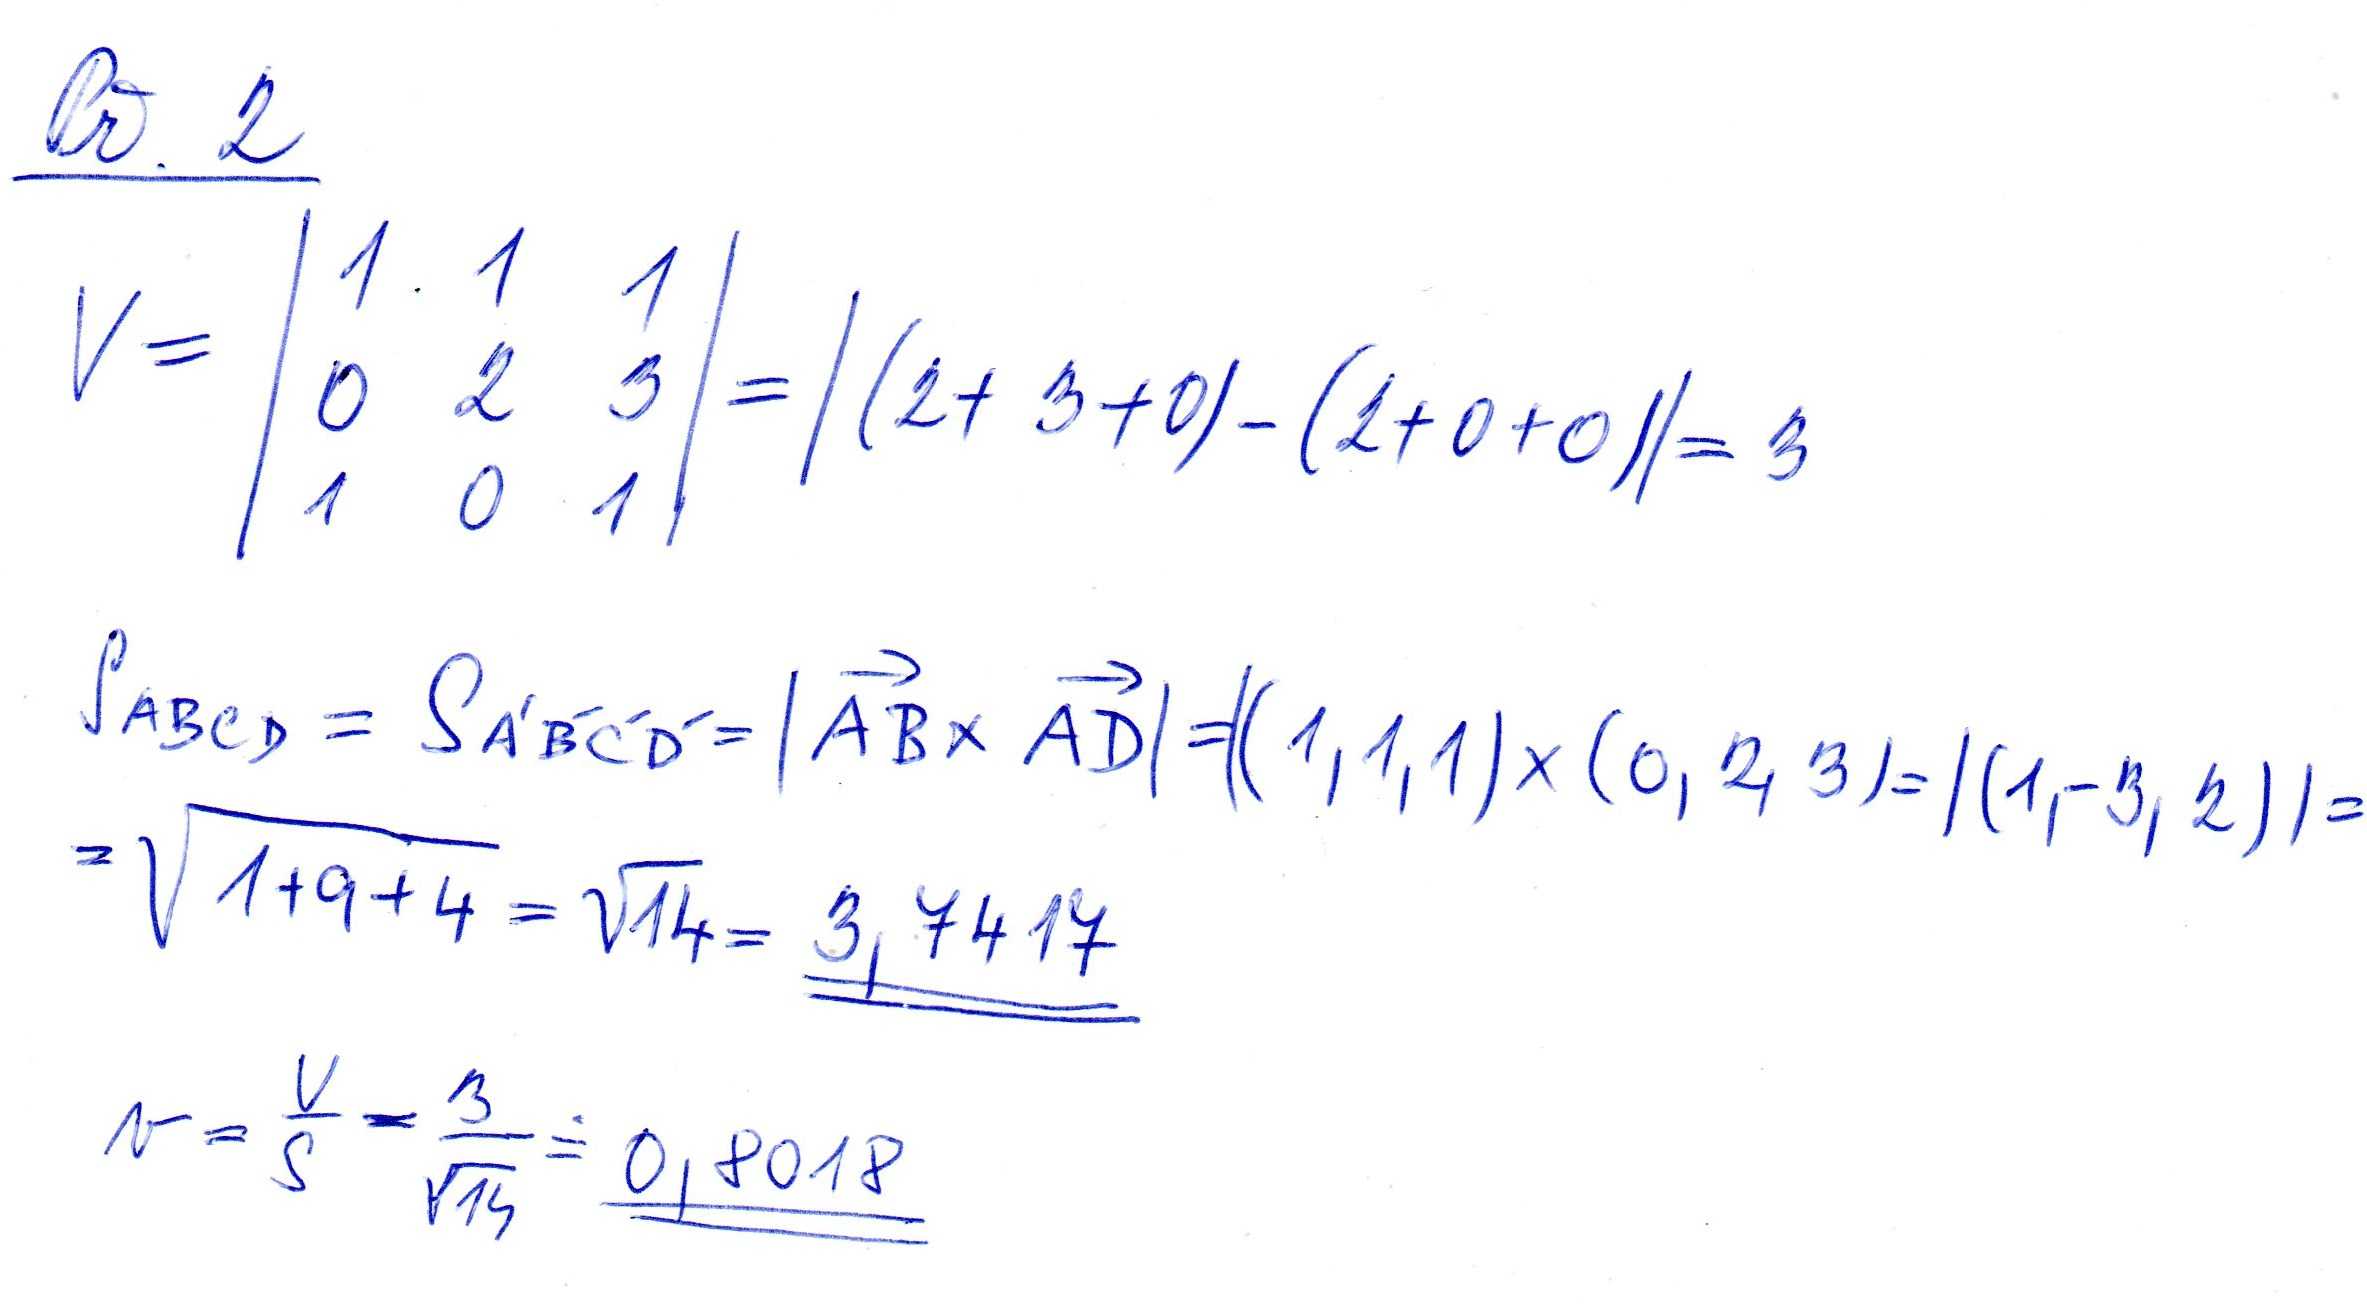 Př. 2
V = | 1 1 1 |
| 0 2 3 | = |(2+3+0)-(2+0+0)| = 3
| 1 0 1 |
S_ABCD = S_A'B'C'D' = |\vec{AB} × \vec{AD}| = |(1,1,1)×(0,2,3) = |(1,-3,2)| =
= √(1+9+4) = √14 = 3,7417
v = V/S = 3/√14 ≐ 0,8018